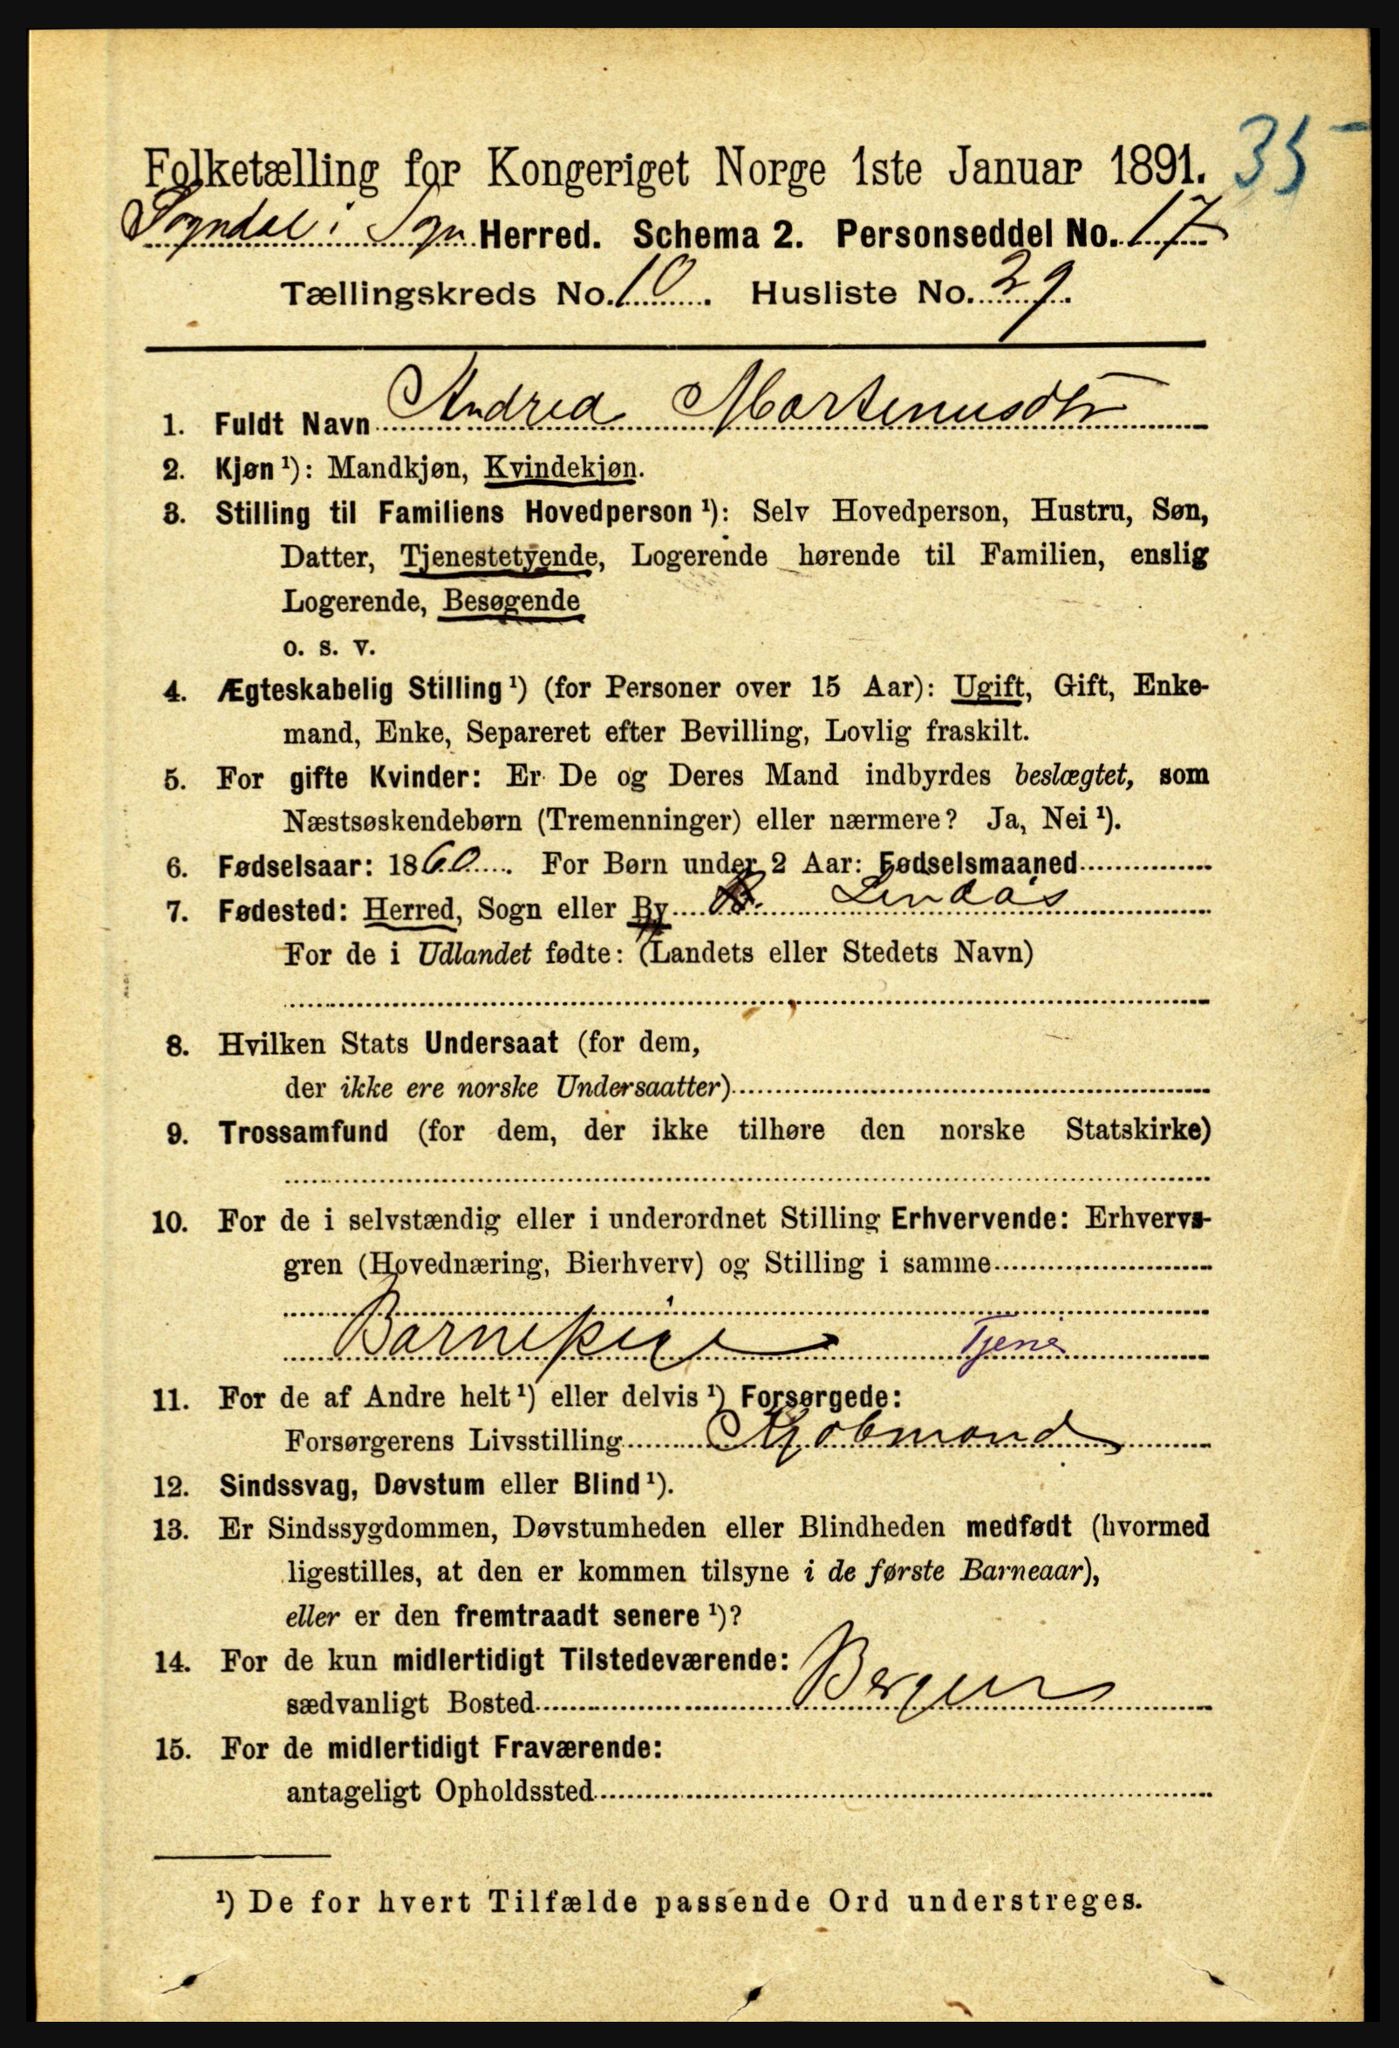 35
Folketælling for Kongeriget Norge 1ste Januar 1891.
Sogndal i Sogn Herred. Schema 2. Personseddel No. 17
Tællingskreds No. 10. Husliste No. 29.
1. Fuldt Navn Andrea Martenusdtr
2. Kjøn ¹): Mandkjøn, Kvindekjøn.
3. Stilling til Familiens Hovedperson ¹): Selv Hovedperson, Hustru, Søn,
Datter, Tjenestetyende, Logerende hørende til Familien, enslig
Logerende, Besøgende
o. s. v.
4. Ægteskabelig Stilling ¹) (for Personer over 15 Aar): Ugift, Gift, Enke-
mand, Enke, Separeret efter Bevilling, Lovlig fraskilt.
5. For gifte Kvinder: Er De og Deres Mand indbyrdes beslægtet, som
Næstsøskendebørn (Tremenninger) eller nærmere? Ja, Nei ¹).
6. Fødselsaar: 1860. For Børn under 2 Aar: Fødselsmaaned
7. Fødested: Herred, Sogn eller By Lindås
For de i Udlandet fødte: (Landets eller Stedets Navn)
8. Hvilken Stats Undersaat (for dem,
der ikke ere norske Undersaatter)
9. Trossamfund (for dem, der ikke tilhøre den norske Statskirke)
10. For de i selvstændig eller i underordnet Stilling Erhvervende: Erhvervs-
gren (Hovednæring, Bierhverv) og Stilling i samme
Barnepige Tjene
11. For de af Andre helt ¹) eller delvis ¹) Forsørgede:
Forsørgerens Livsstilling Kjøbmand
12. Sindssvag, Døvstum eller Blind ¹).
13. Er Sindssygdommen, Døvstumheden eller Blindheden medfødt (hvormed
ligestilles, at den er kommen tilsyne i de første Barneaar),
eller er den fremtraadt senere ¹)?
14. For de kun midlertidigt Tilstedeværende:
sædvanligt Bosted Bergen
15. For de midlertidigt Fraværende:
antageligt Opholdssted
¹) De for hvert Tilfælde passende Ord understreges.